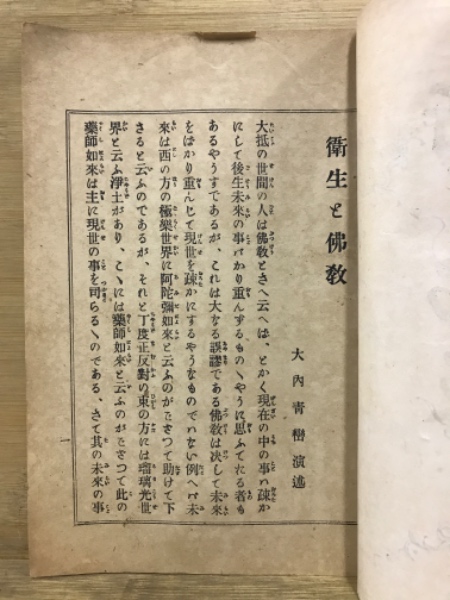 衛生と佛教
大内青巒演述
大抵の世間の人は佛教とさへ云へば、とかく現在の中の事ハ疎か
にして後生未來の事ばかり重んずるものヽやうに思ふてたる者も
あるやうすであるが、これは大なる誤謬である佛教は决して未來
をばかり重んじて現世を疎かにするやうなものでハない例へハ未
來は西の方の極樂世界に阿陀彌如來と云ふのがござつて助けて下
さると云ふのであるが、それと丁度正反對の東の方には瑠璃光世
界と云ふ淨土があり、こヽには藥師如來と云ふのがござつて此の
藥師如來は主に現世の事を司らるヽのである、さて其の未來の事